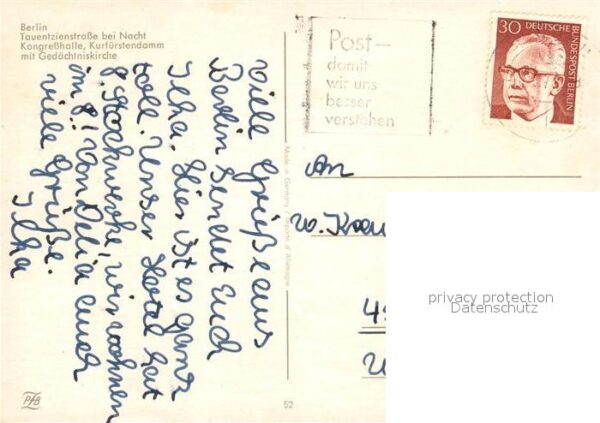 Berlin
Tauentzienstraße bei Nacht
Kongreßhalle, Kurfürstendamm
mit Gedächtniskirche
Viele Grüße aus
Berlin sendet Euch
Ilka. Hier ist es ganz
toll. Unser Hotel hat
8 Stockwerke, wir wohnen
im 8! Von Delia auch
viele Grüße.
Ilka
Post –
damit
wir uns
besser
verstehen
30
DEUTSCHE
BUNDESPOST BERLIN
An
Made in Germany / Importé d'Allemagne
privacy protection
Datenschutz
PfB
52